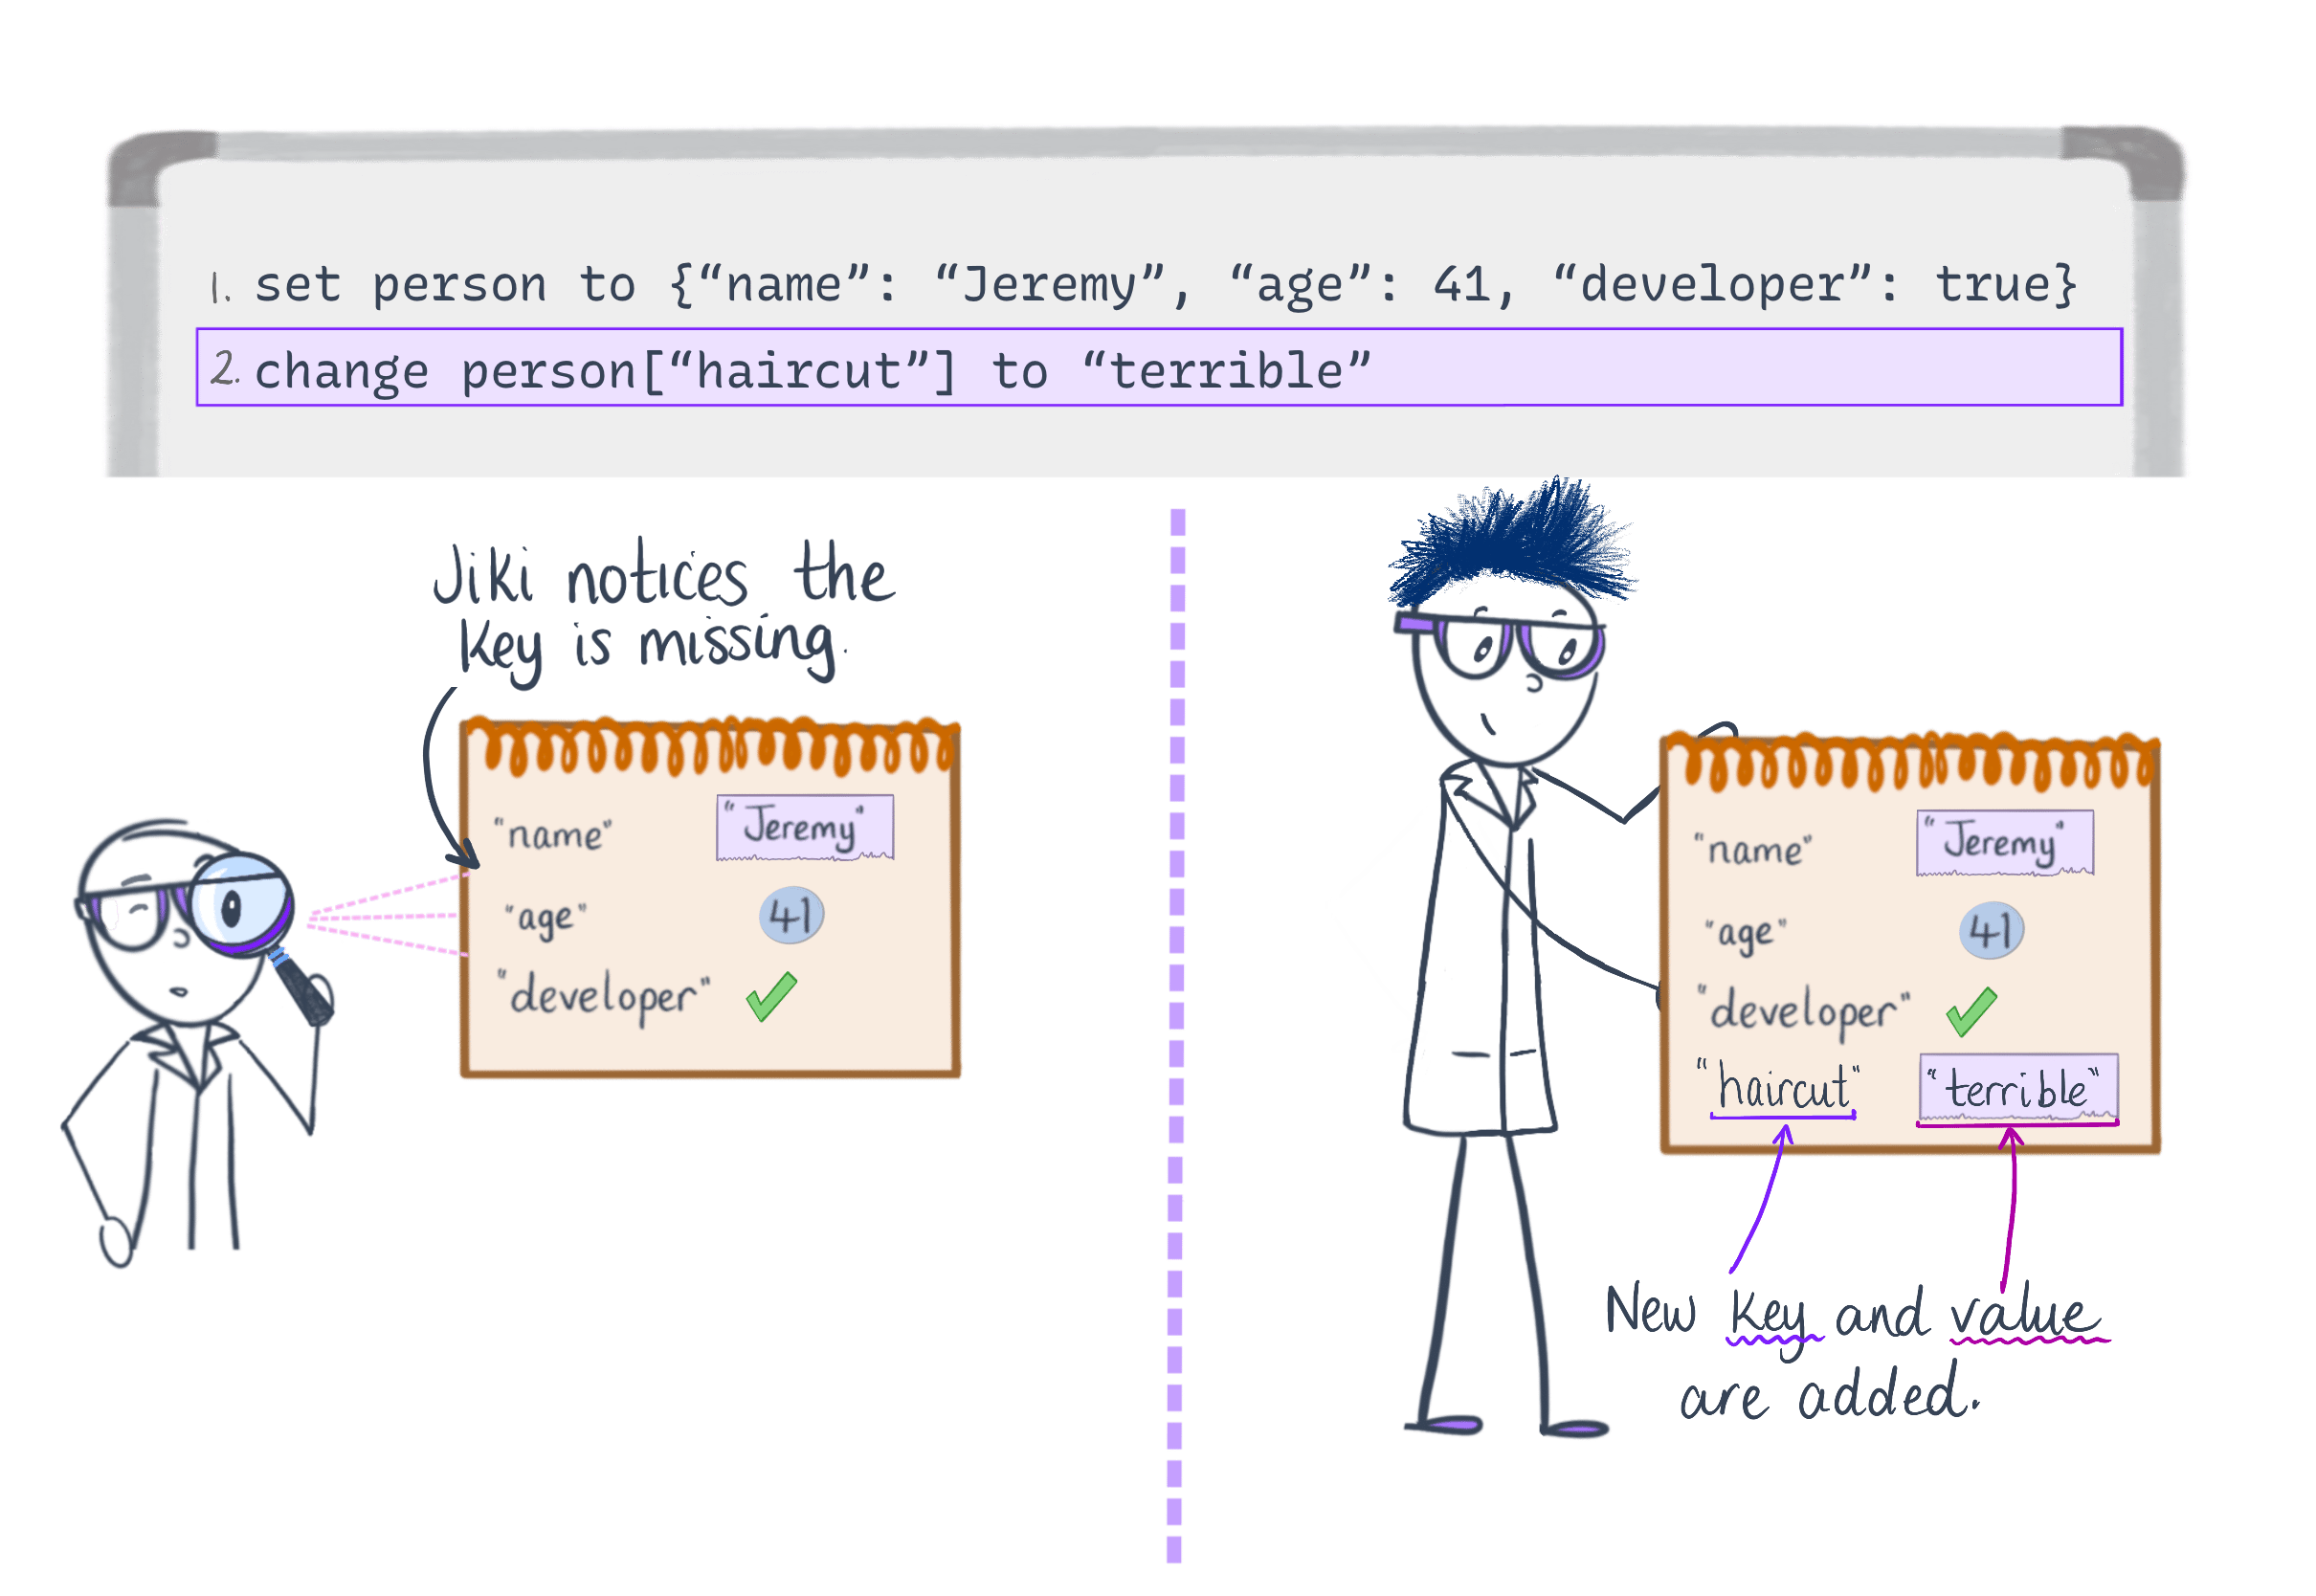 1. set person to {“name”: “Jeremy”, “age”: 41, “developer”: true}
2. change person[“haircut”] to “terrible”
Jiki notices the
key is missing.
"name" "Jeremy"
"age" 41
"developer"
"name" "Jeremy"
"age" 41
"developer"
"haircut" "terrible"
New key and value
are added.